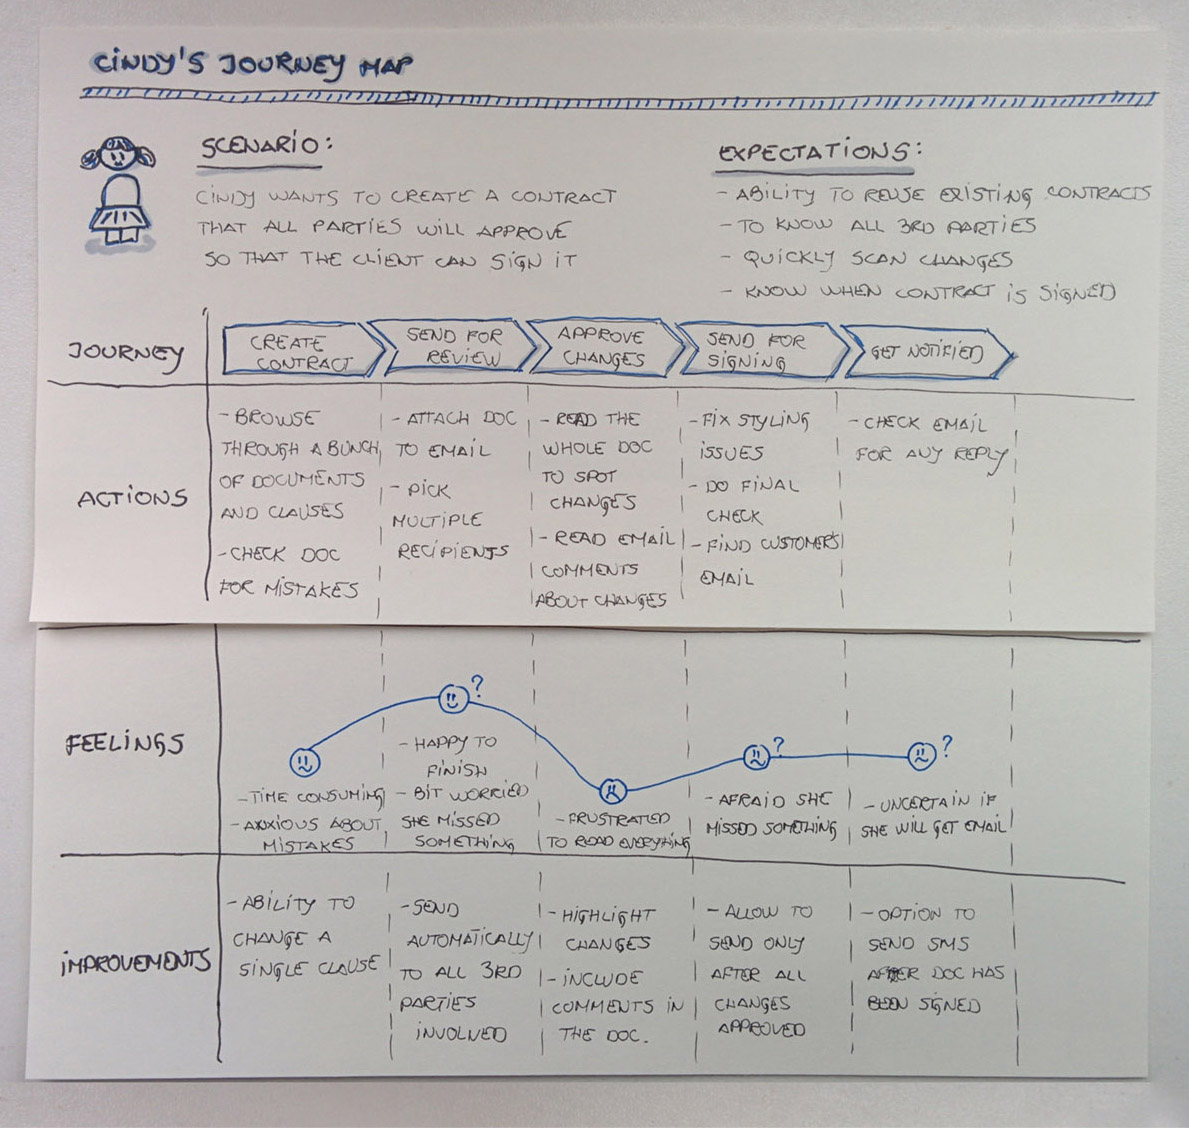 CINDY'S JOURNEY MAP
SCENARIO:
CINDY WANTS TO CREATE A CONTRACT
THAT ALL PARTIES WILL APPROVE
SO THAT THE CLIENT CAN SIGN IT
EXPECTATIONS:
- ABILITY TO REUSE EXISTING CONTRACTS
- TO KNOW ALL 3RD PARTIES
- QUICKLY SCAN CHANGES
- KNOW WHEN CONTRACT IS SIGNED
JOURNEY
CREATE
CONTRACT
SEND FOR
REVIEW
APPROVE
CHANGES
SEND FOR
SIGNING
GET NOTIFIED
ACTIONS
- BROWSE
THROUGH A BUNCH
OF DOCUMENTS
AND CLAUSES
- CHECK DOC
FOR MISTAKES
- ATTACH DOC
TO EMAIL
- PICK
MULTIPLE
RECIPIENTS
- READ THE
WHOLE DOC
TO SPOT
CHANGES
- READ EMAIL
COMMENTS
ABOUT CHANGES
- FIX STYLING
ISSUES
- DO FINAL
CHECK
- FIND CUSTOMERS'
EMAIL
- CHECK EMAIL
FOR ANY REPLY
FEELINGS
- TIME CONSUMING
- ANXIOUS ABOUT
MISTAKES
?
- HAPPY TO
FINISH
- BIT WORRIED
SHE MISSED
SOMETHING
- FRUSTRATED
TO READ EVERYTHING
?
- AFRAID SHE
MISSED SOMETHING
?
- UNCERTAIN IF
SHE WILL GET EMAIL
IMPROVEMENTS
- ABILITY TO
CHANGE A
SINGLE CLAUSE
- SEND
AUTOMATICALLY
TO ALL 3RD
PARTIES
INVOLVED
- HIGHLIGHT
CHANGES
- INCLUDE
COMMENTS IN
THE DOC.
- ALLOW TO
SEND ONLY
AFTER ALL
CHANGES
APPROVED
- OPTION TO
SEND SMS
AFTER DOC HAS
BEEN SIGNED